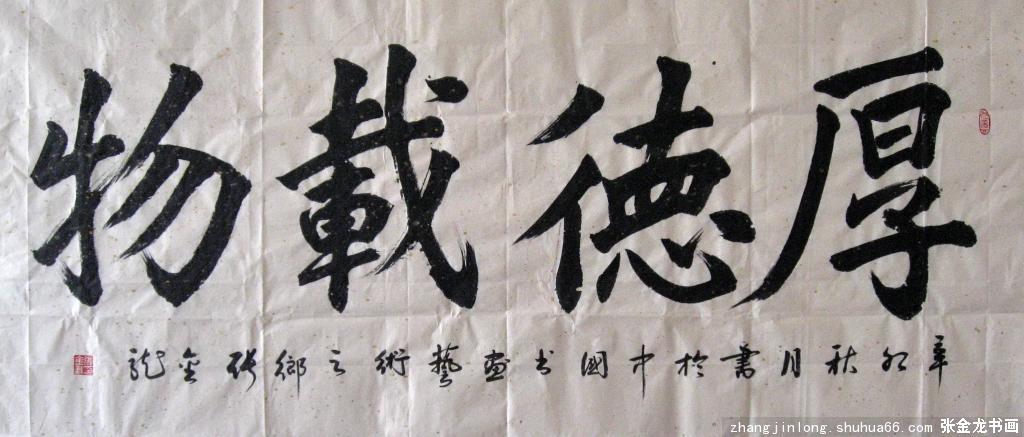 厚德載物
辛卯秋月書於中國书画藝術之鄉張金龍
zhangjinlong.shuhua66.com 张金龙书画